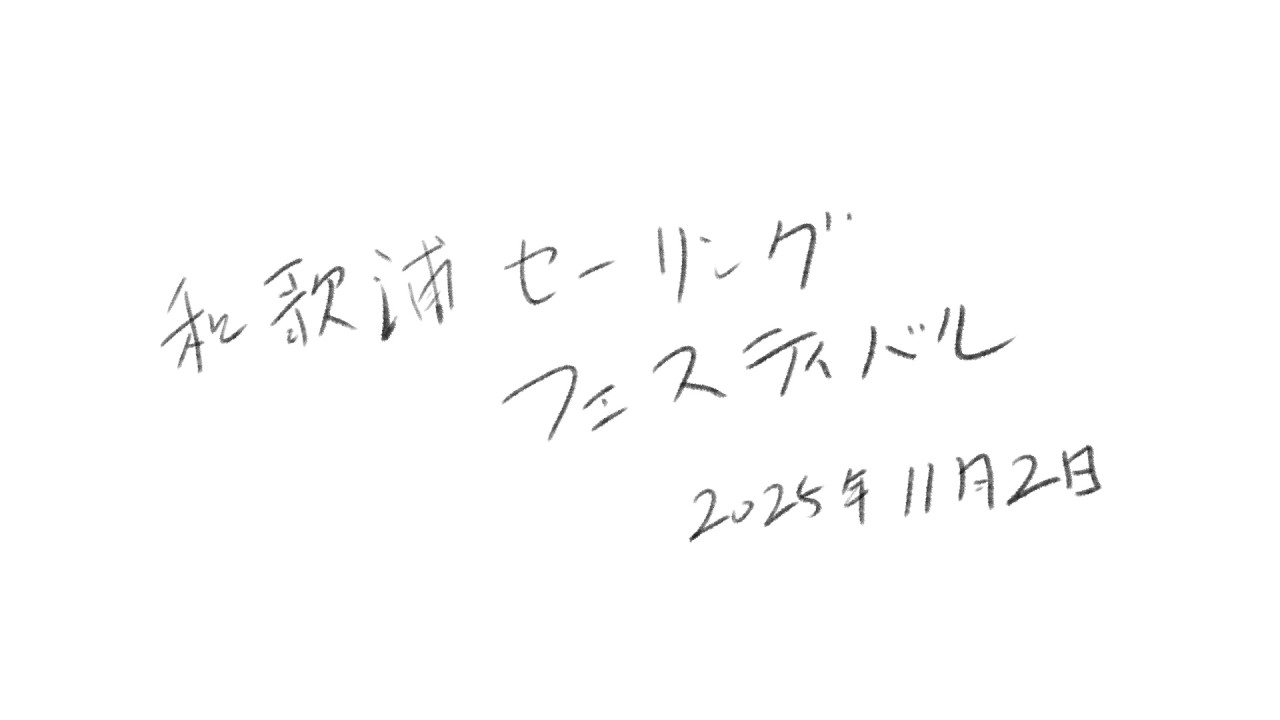 和歌浦セーリング
フェスティバル
2025年11月2日